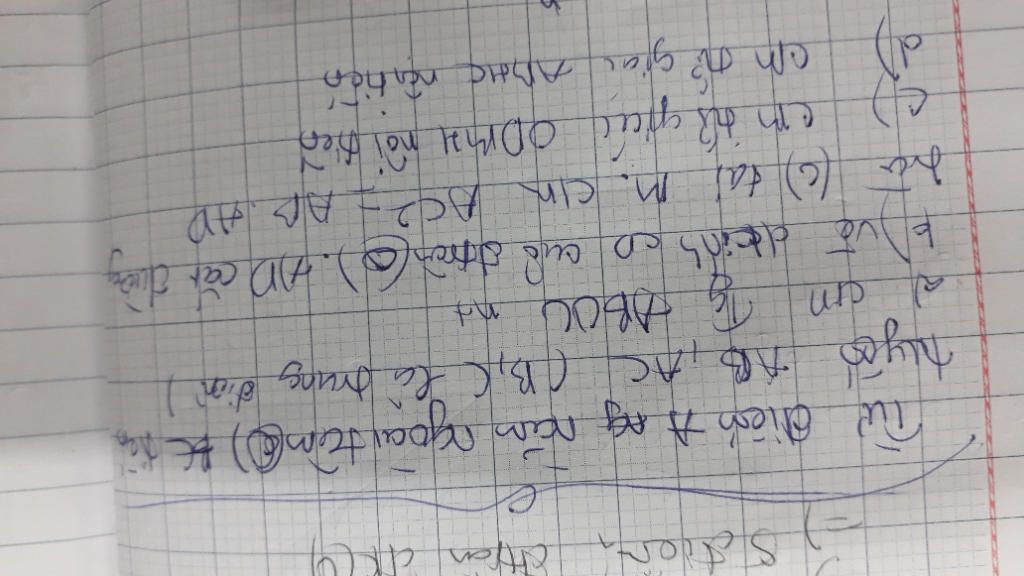 =) 5 điểm,
Từ điểm A ng nằm ngoài tâm (O) kẻ tiếp
tuyến AB, AC (B, C là trung điểm)
a) cm Tg ABOC nt
b) vẽ đkính CD của đtròn (O). AD cắt đường
tròn (C) tại M. cm AC2 = AD. AD
c) cm tứ giác ODMH nội tiếp
d) cm tứ giác AMHC nội tiếp